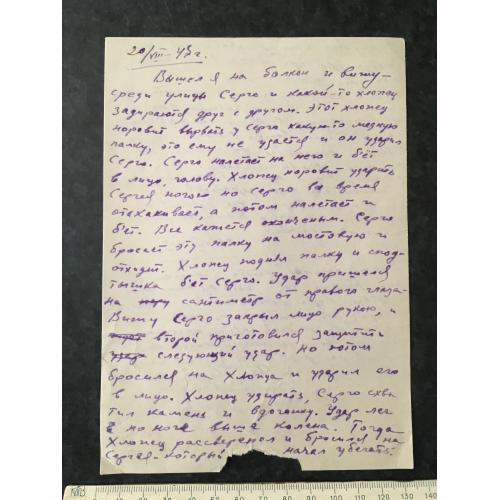 20/VIII-45 г.
Вышел я на балкон и вижу-
среди улицы Серго и какой-то хлопец
задираются друг с другом. Этот хлопец
норовит вырвать у Серго какую-то медную
палку, это ему не удается и он ударил
Серго. Серго налетает на него и бьёт
в лицо, голову. Хлопец норовит ударить
Сергея ногой но Серго во время
отскакивает, а потом налетает и
бьёт. Все кажется оконченым. Серго
бросает эту палку на мостовую и
отходит. Хлопец поднял палку и спод-
тышка бьёт Серго. Удар пришелся
на сантиметр от правого глаза-
Вижу Серго закрыл лицо рукою, и
второй приготовился защитить
следующий удар. Но потом
бросился на хлопца и ударил его
в лицо. Хлопец удирать, Серго схва
тил камень и вдогонку. Удар лег
по ноге выше колена. Тогда
Хлопец рассверепел и бросился на
Сергея-который начал убегать-
MB 10 20 30 40 50 60 70 80 90 100 110 120 130 140